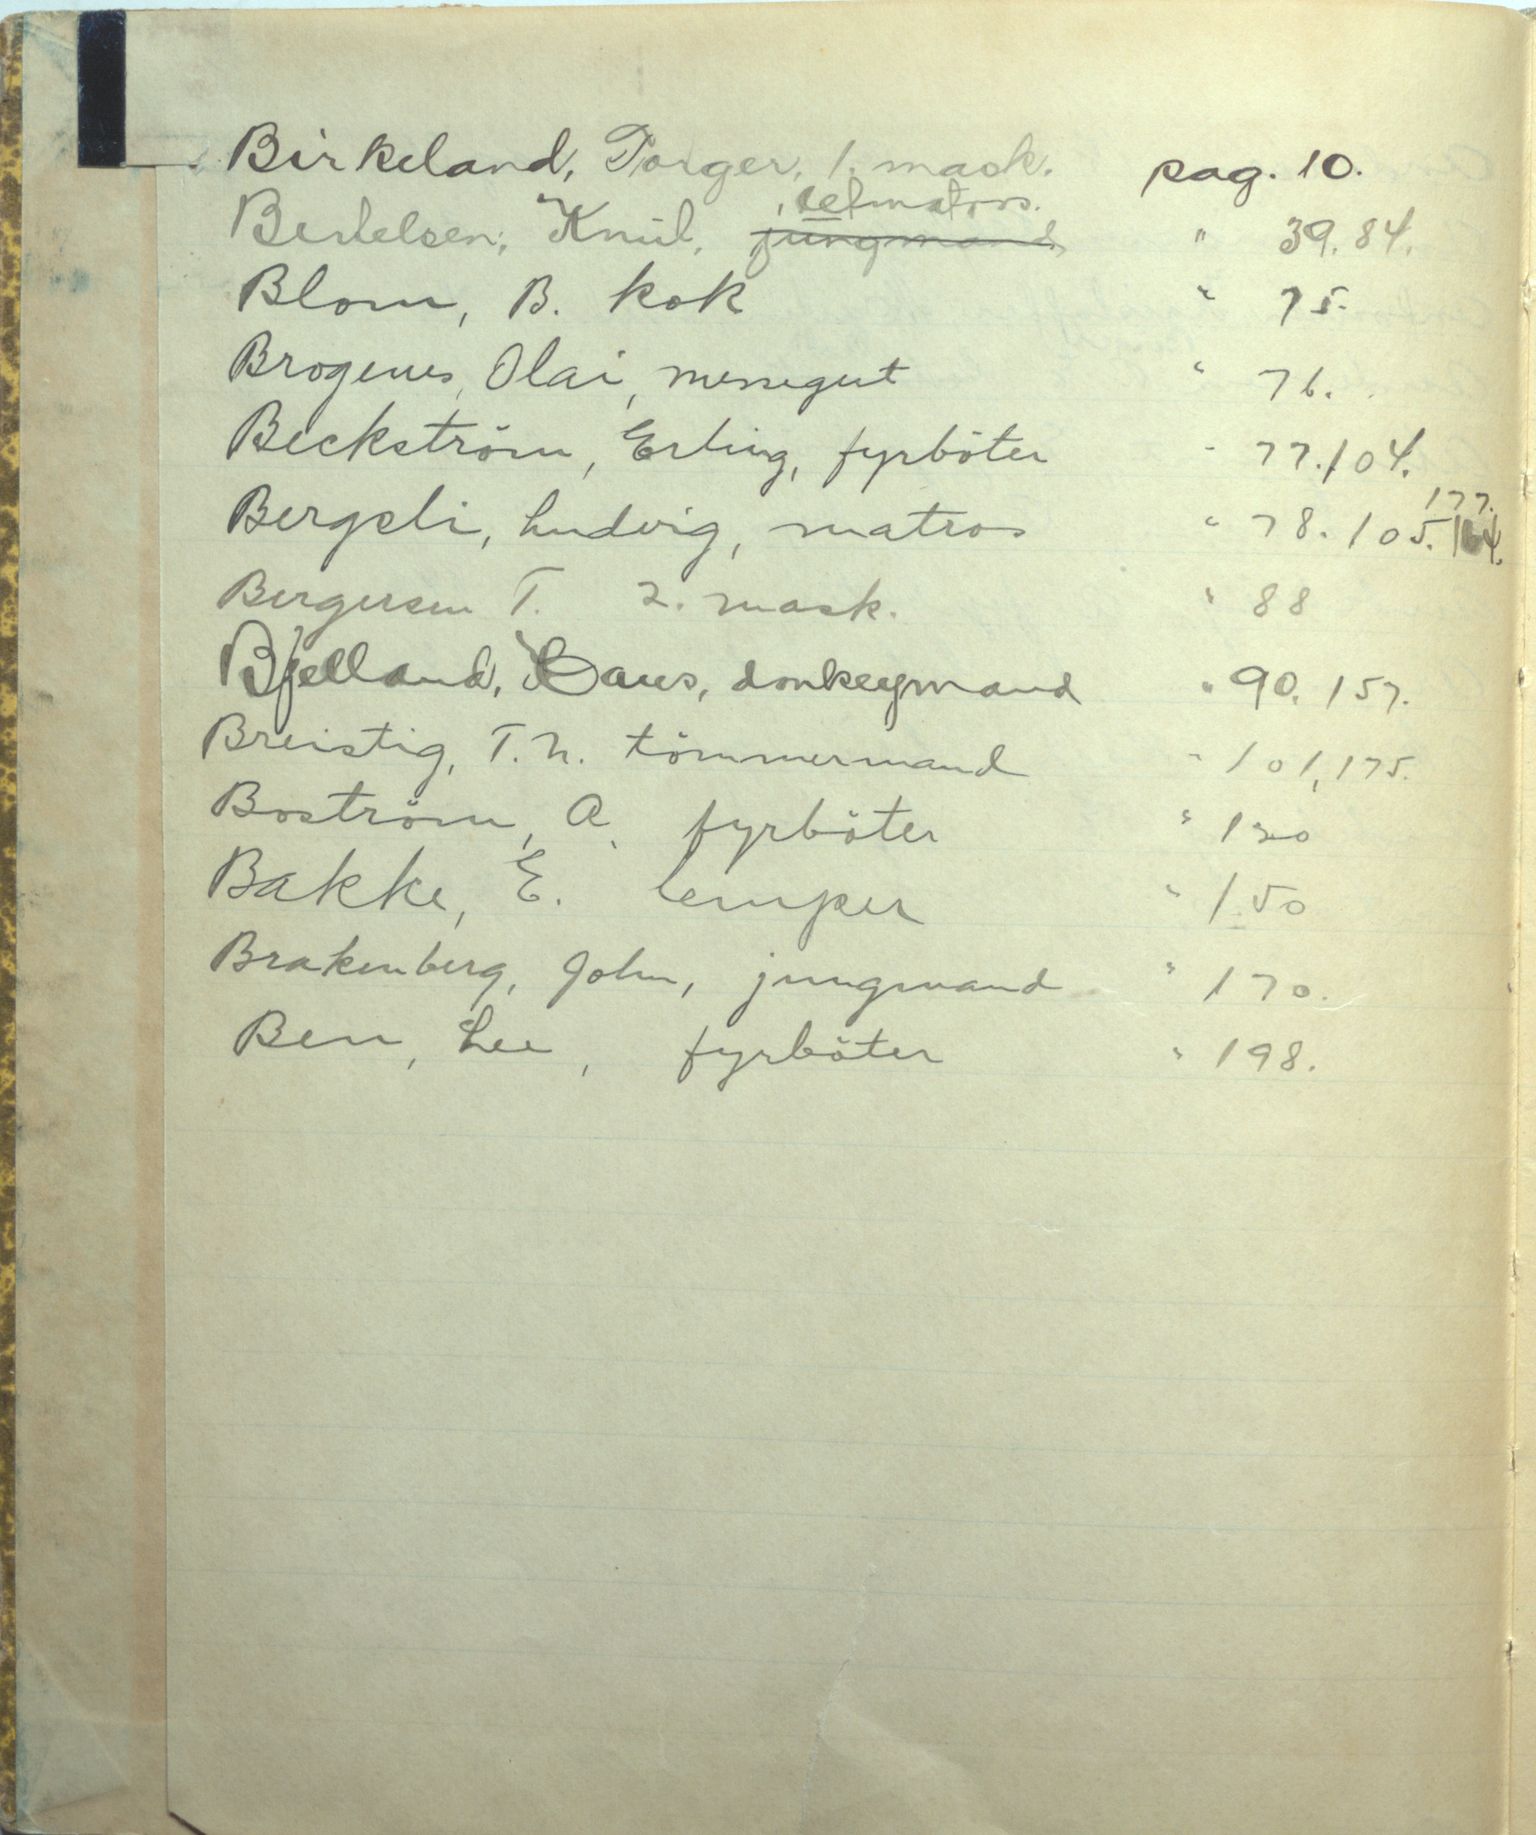 Birkeland, Torger, 1. mask. pag. 10.
, letmatros.
Bertelsen, Knut, jungmand " 39. 84.
Blom, B. kok " 75.
Brogenes, Olai, messegut " 76.
Beckström, Erling, fyrböter " 77. 104.
177.
Bergsli, Ludvig, matros " 78. 105. 164.
Bergersen T. 2. mask. " 88
Bjelland, donkeymand " 90. 157.
Breistig, T. N. tömmermand " 101, 175.
Boström, A. fyrböter " 120
Bakke, E. lemper " 150
Brakenberg, John, jungmand " 170.
Ben, Lee, fyrböter " 198.